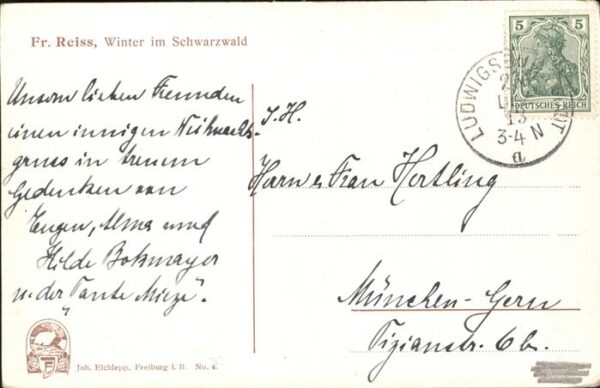 Fr. Reiss, Winter im Schwarzwald
Unsern lieben Freunden
einen innigen Weihnachts-
gruss in treuem
Gedenken von
Eugen, Alma und
Hilde Bokmayer
u. der "Tante Mieze".
Joh. Elchlepp, Freiburg i. B. No. 4.
5 5
DEUTSCHES REICH
LUDWIGS
13
3-4 N
a
S. H.
Herrn & Frau Hertling
München-Gern
Tizianstr. 6 b.